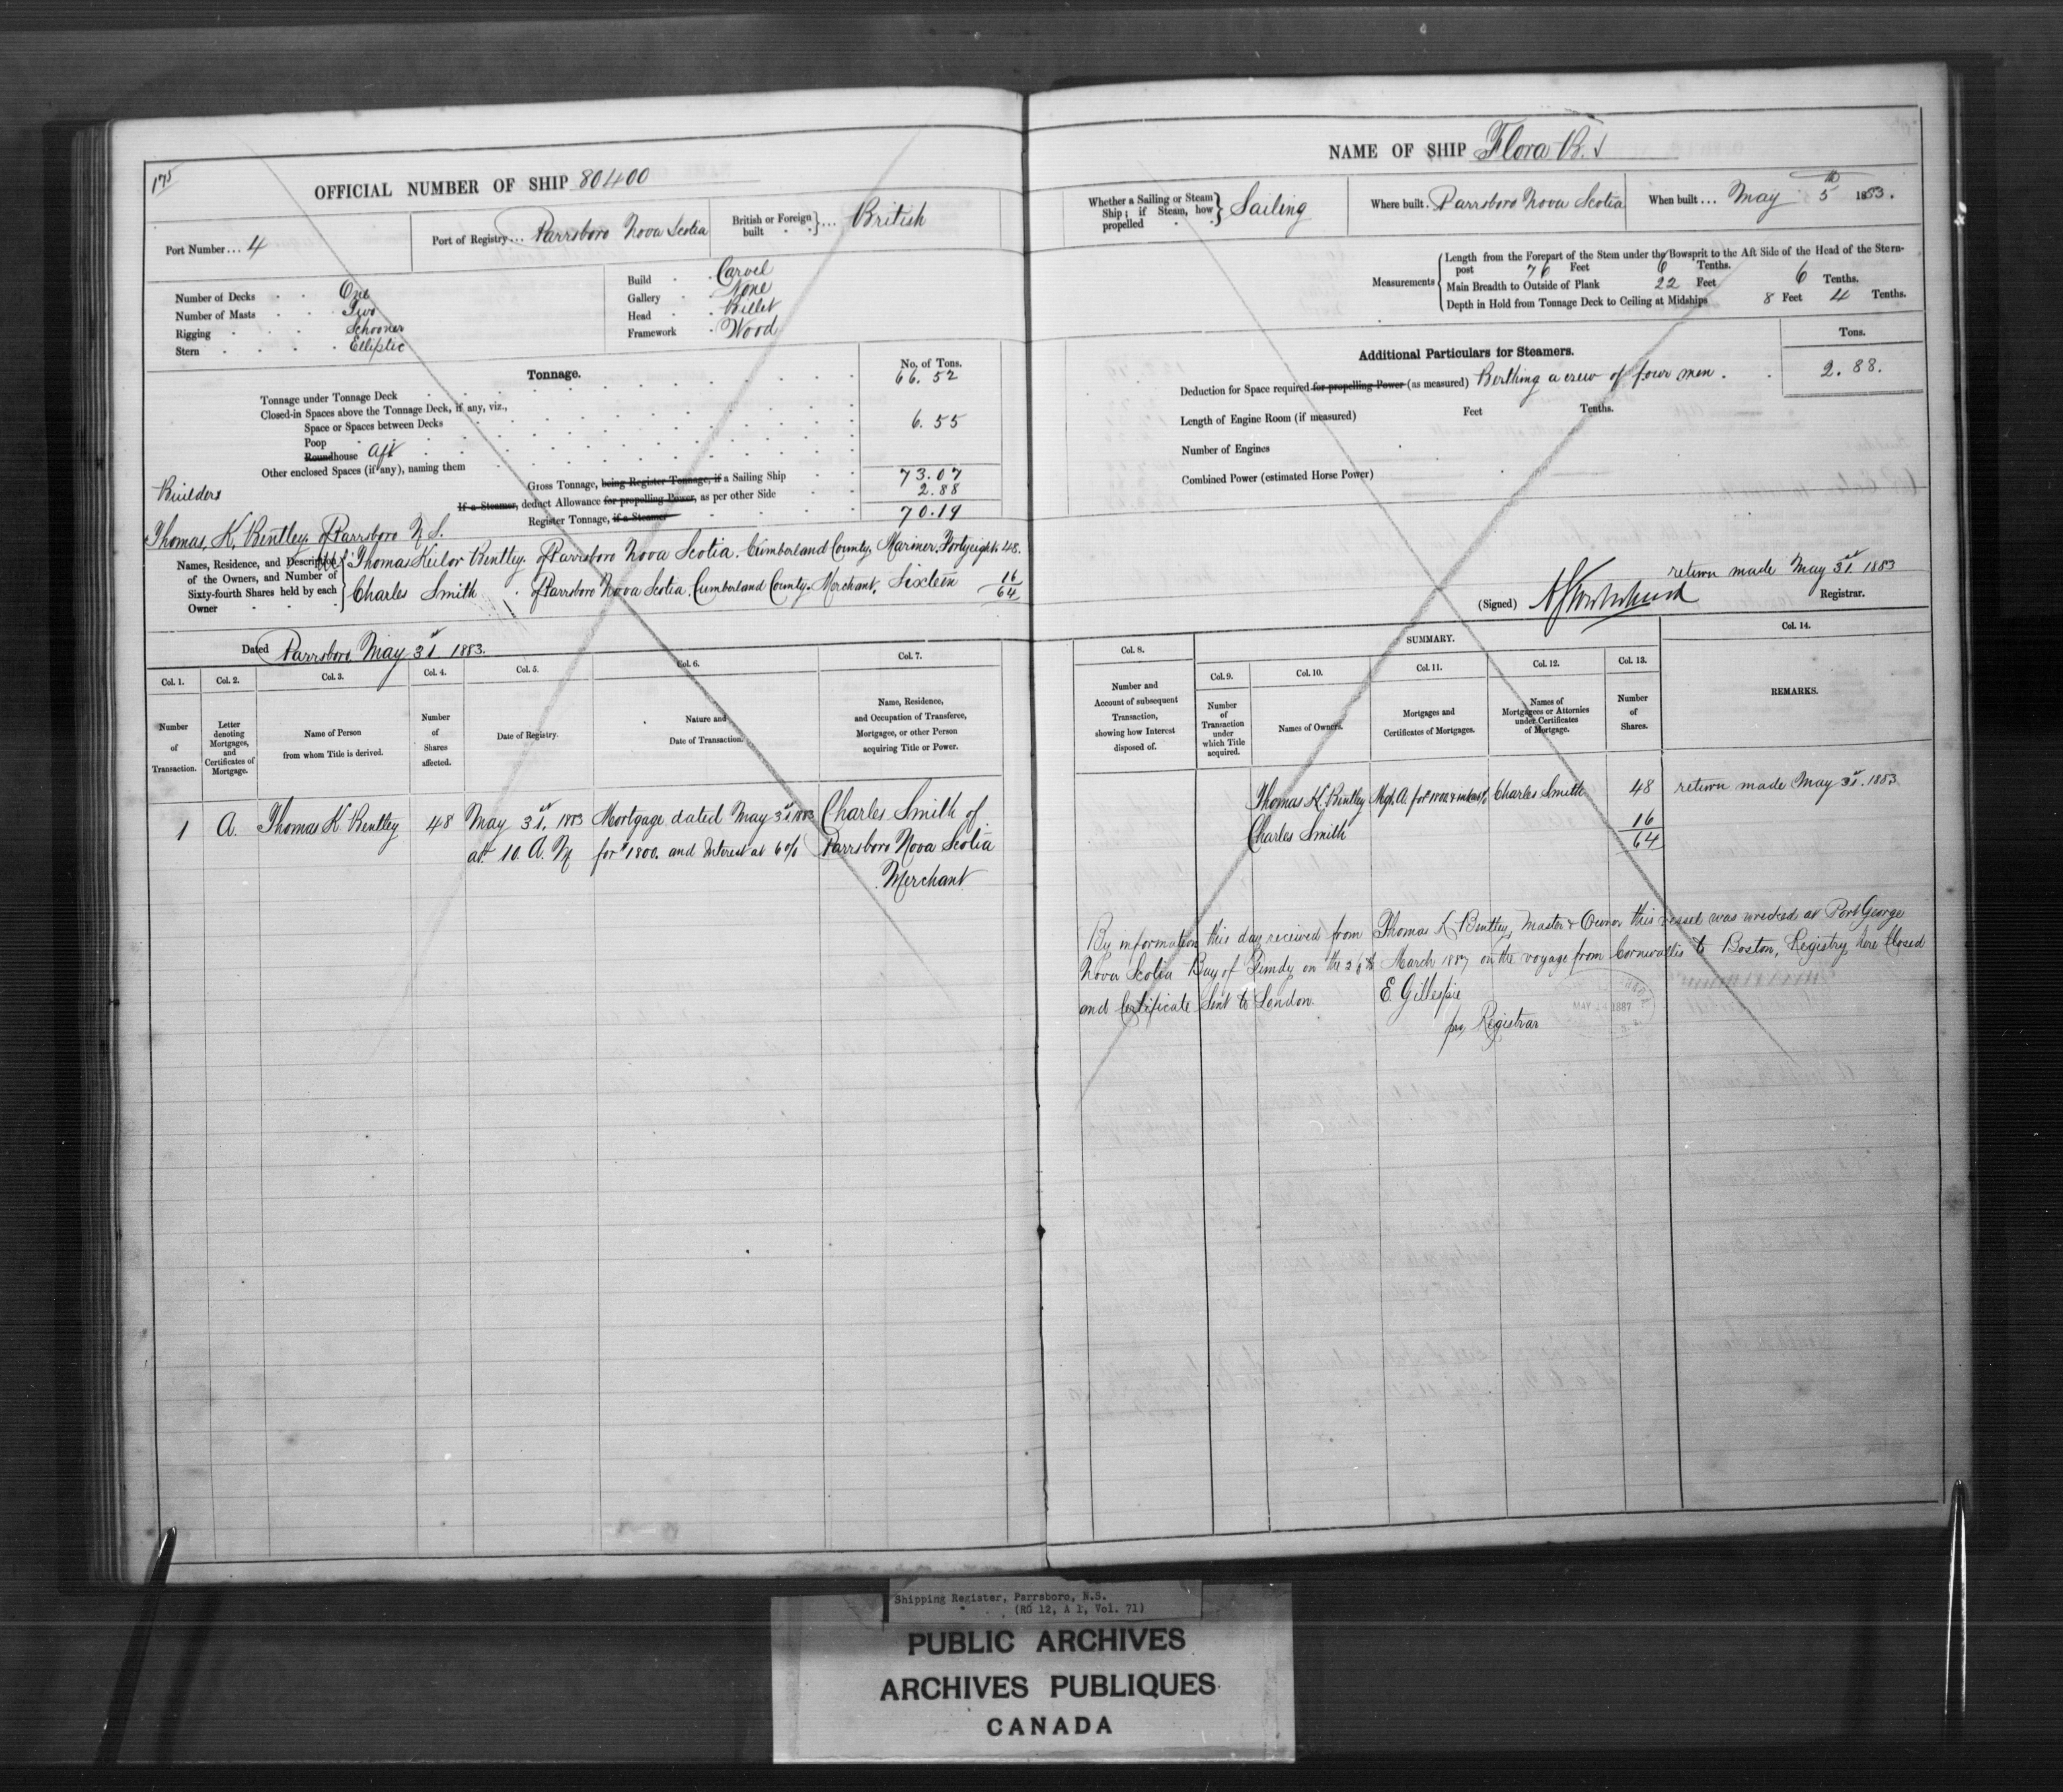 175
OFFICIAL NUMBER OF SHIP 80400
Port Number... 4
Port of Registry... Parrsboro Nova Scotia
British or Foreign built } ... British
Number of Decks One
Number of Masts Two
Rigging Schooner
Stern Elliptic
Build Carvel
Gallery None
Head Billet
Framework Wood
Tonnage.
No. of Tons.
Tonnage under Tonnage Deck 66.52
Closed-in Spaces above the Tonnage Deck, if any, viz.,
Space or Spaces between Decks
Poop 6.55
Roundhouse aft
Other enclosed Spaces (if any), naming them
Gross Tonnage, being Register Tonnage, if a Sailing Ship 73.07
If a Steamer, deduct Allowance for propelling Power, as per other Side 2.88
Register Tonnage, if a Steamer 70.19
Builders
Thomas, K, Bentley of Parrsboro N S.
Names, Residence, and Description of the Owners, and Number of Sixty-fourth Shares held by each Owner
Thomas Keilor Bentley. of Parrsboro Nova Scotia. Cumberland County, Mariner. Fortyeight. 48.
Charles Smith of Parrsboro Nova Scotia. Cumberland County. Merchant, Sixteen 16
64
Dated Parrsboro May 31st 1883.
Col. 1. Col. 2. Col. 3. Col. 4. Col. 5. Col. 6. Col. 7.
Number of Transaction.
Letter denoting Mortgages, and Certificates of Mortgage.
Name of Person from whom Title is derived.
Number of Shares affected.
Date of Registry.
Nature and Date of Transaction.
Name, Residence, and Occupation of Transferee, Mortgagee, or other Person acquiring Title or Power.
1 A. Thomas K Bentley 48 May 31st, 1883 Mortgage dated May 31st 1883 Charles Smith of
at 10. A. M for $1800. and Interest at 6% Parrsboro Nova Scotia
Merchant
NAME OF SHIP Flora B.
Whether a Sailing or Steam Ship; if Steam, how propelled } Sailing
Where built. Parrsboro Nova Scotia
When built... May 5th 1883.
Measurements
Length from the Forepart of the Stem under the Bowsprit to the Aft Side of the Head of the Stern-
post 76 Feet 6 Tenths.
Main Breadth to Outside of Plank 22 Feet 6 Tenths.
Depth in Hold from Tonnage Deck to Ceiling at Midships 8 Feet 4 Tenths.
Additional Particulars for Steamers.
Tons.
Deduction for Space required for propelling Power (as measured) Berthing a crew of four men. 2.88.
Length of Engine Room (if measured) Feet Tenths.
Number of Engines
Combined Power (estimated Horse Power)
return made May 31st 1883
(Signed)
Registrar.
Col. 8.
SUMMARY.
Col. 9. Col. 10. Col. 11. Col. 12. Col. 13. Col. 14.
Number and Account of subsequent Transaction, showing how Interest disposed of.
Number of Transaction under which Title acquired.
Names of Owners.
Mortgages and Certificates of Mortgages.
Names of Mortgagees or Attornies under Certificates of Mortgage.
Number of Shares.
REMARKS.
Thomas K. Bentley Mtg. A. for 1800 & Charles Smith 48 return made May 31st. 1883
Charles Smith 16
64
By information this day received from Thomas K Bentley, Master & Owner this vessel was wrecked at Port George
Nova Scotia Bay of Fundy on the March 1887 on the voyage from Cornwallis to Boston, Registry here Closed
and Certificate sent to London. E. Gillespie
Registrar
MAY 1887
Shipping Register, Parrsboro, N.S.
(RG 12, A 1, Vol. 71)
PUBLIC ARCHIVES
ARCHIVES PUBLIQUES
CANADA